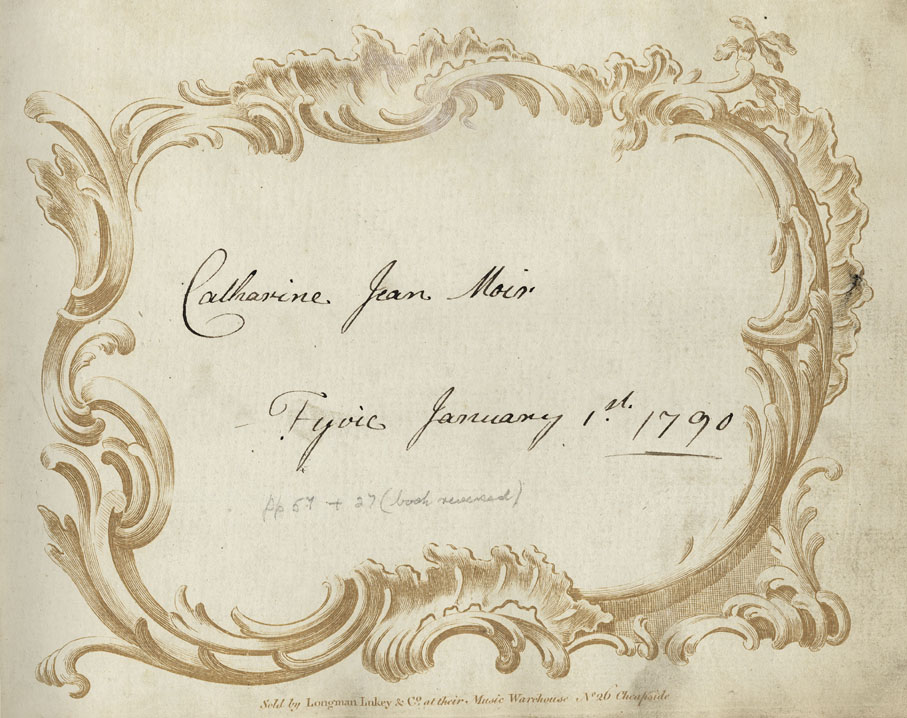 Catharine Jean Moir
Fyvie January 1st. 1790
pp 57 + 27 (book reversed)
Sold by Longman Lukey & Co. at their Music Warehouse No. 26 Cheapside